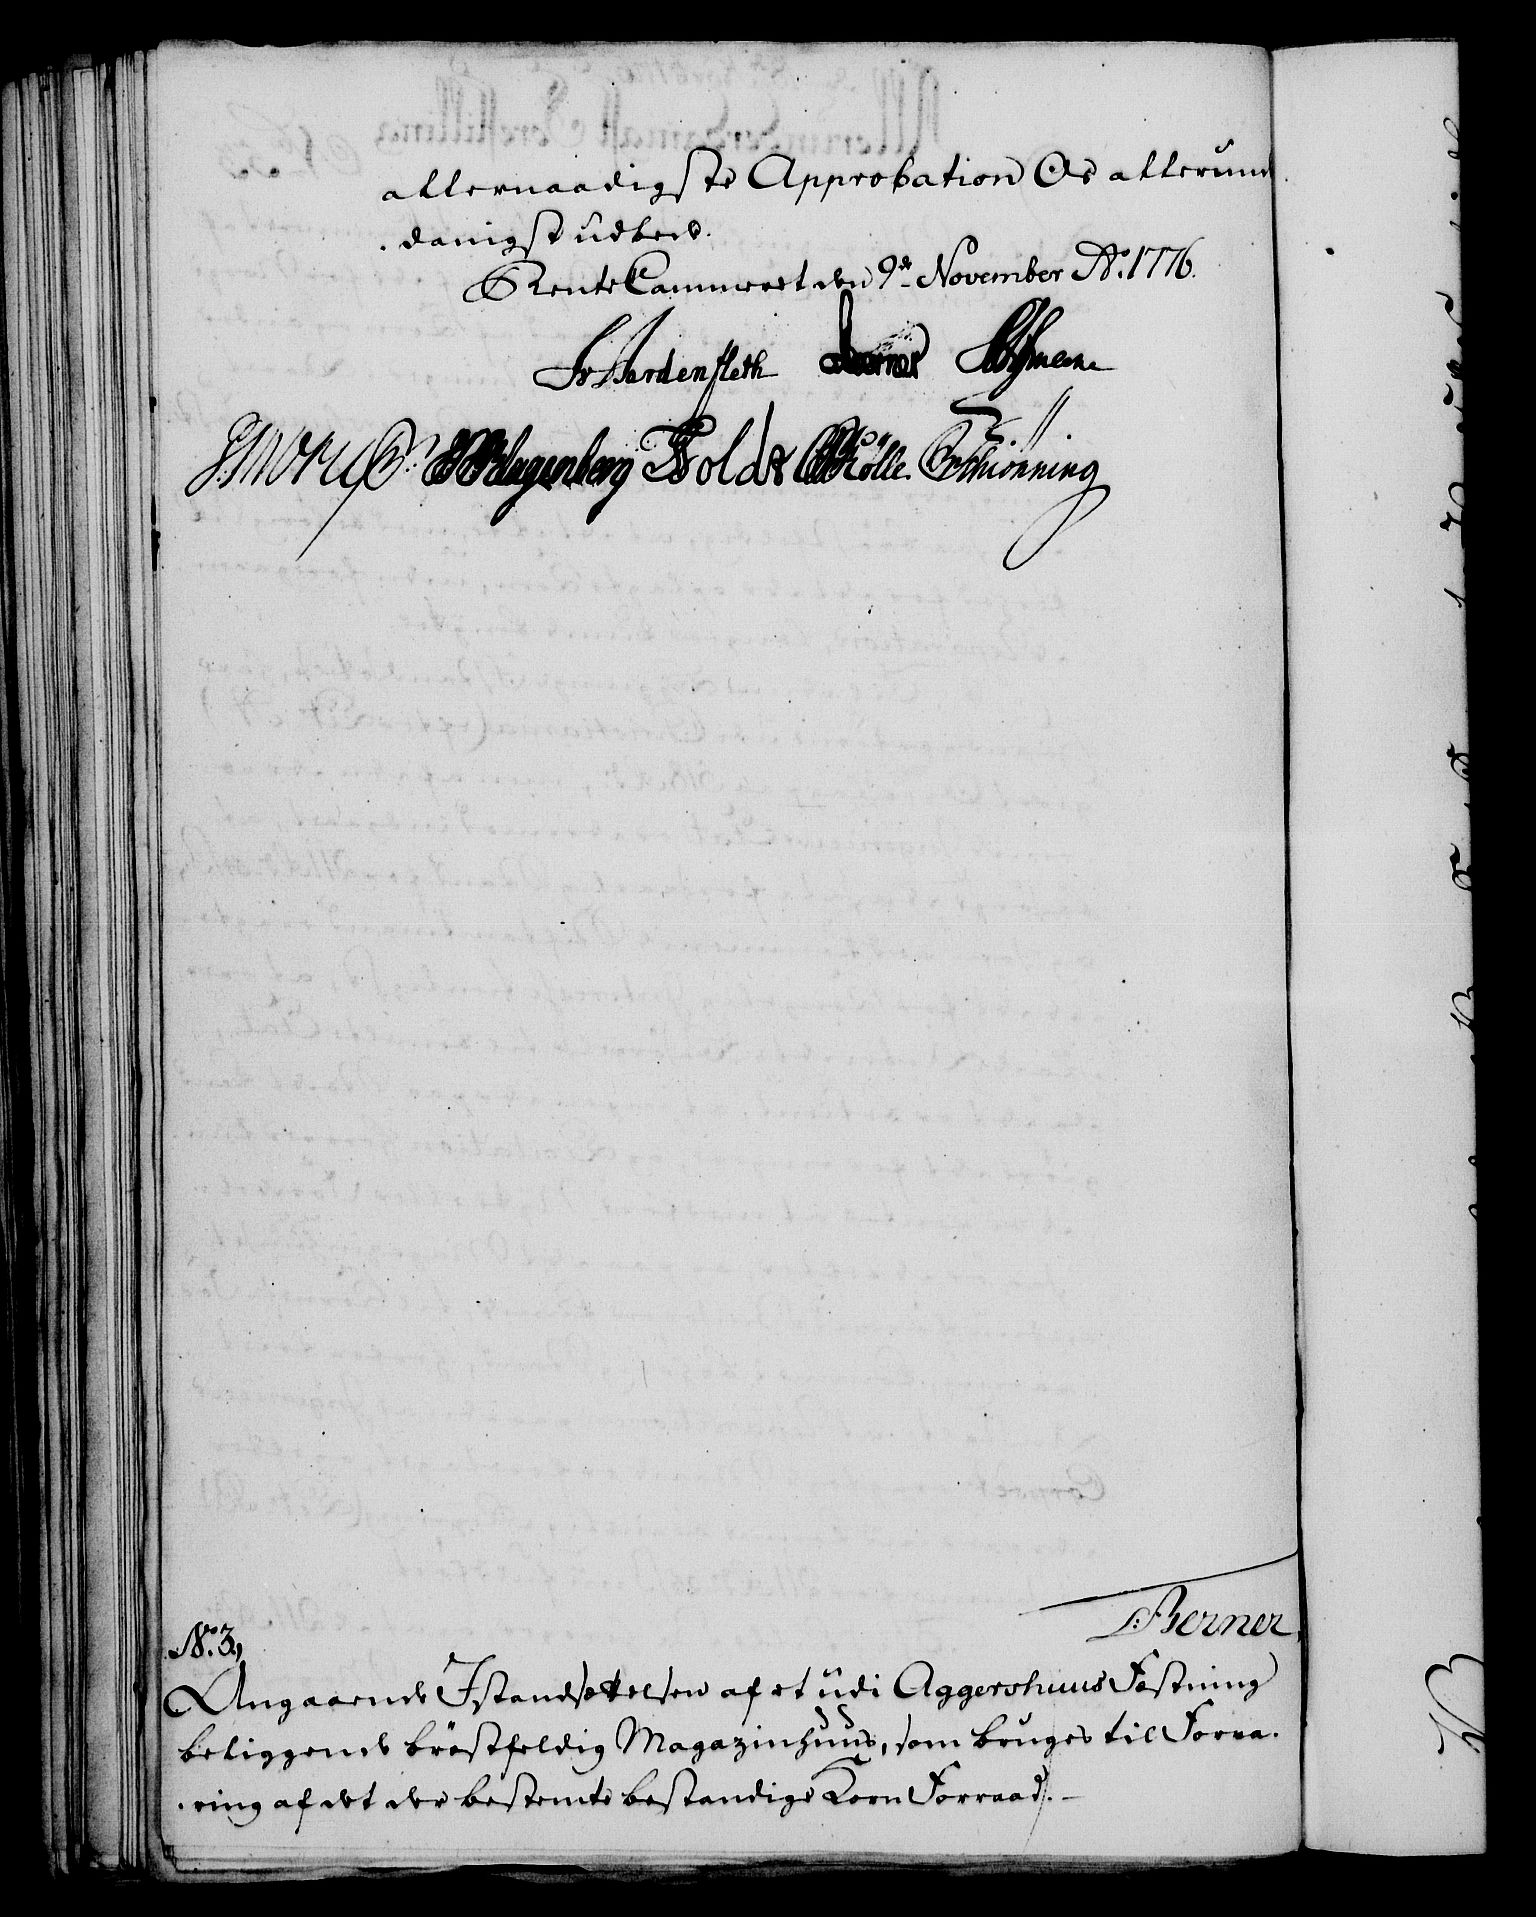 allernaadigste Approbation Os allerund
. danigst udbede.
RenteCammeret den 9de November Ao. 1776.
Hardenfleth Berner
Klagenberg Holdt Rölle. Schiönning
L: Berner.
No. 3,
Angaaende Istandsættelsen af et udi Aggershuus Fæstning
beliggende bröstfeldig Magazinhuus, som bruges til Forva-
. ring af det der bestemte bestandige Korn Forraad. –